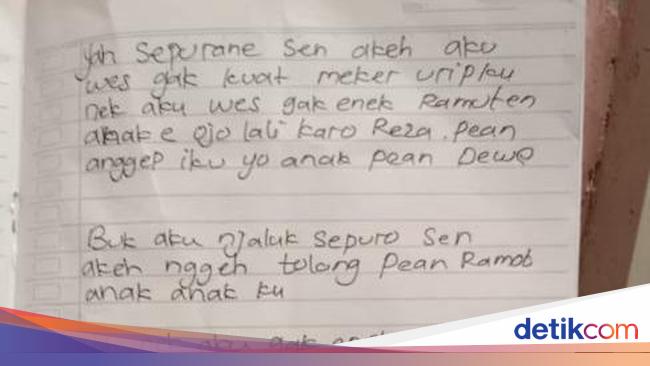 yah sepurane sen akeh aku
wes gak kuat meker uripku
nek aku wes gak enek Ramuten
anak e ojo lali karo Reza. Pean
anggep iku yo anak pean Dewe
Buk aku njaluk sepuro sen
akeh nggeh tolong pean Ramot
anak anak ku
aku gak
detikcom